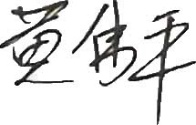 黄伟平